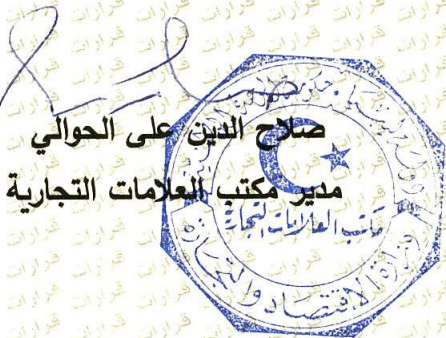 صلاح الدين على الحوالي
مدير مكتب العلامات التجارية
مكتب العلامات التجارة
وزارة الاقتصاد والتجارة
قرارات